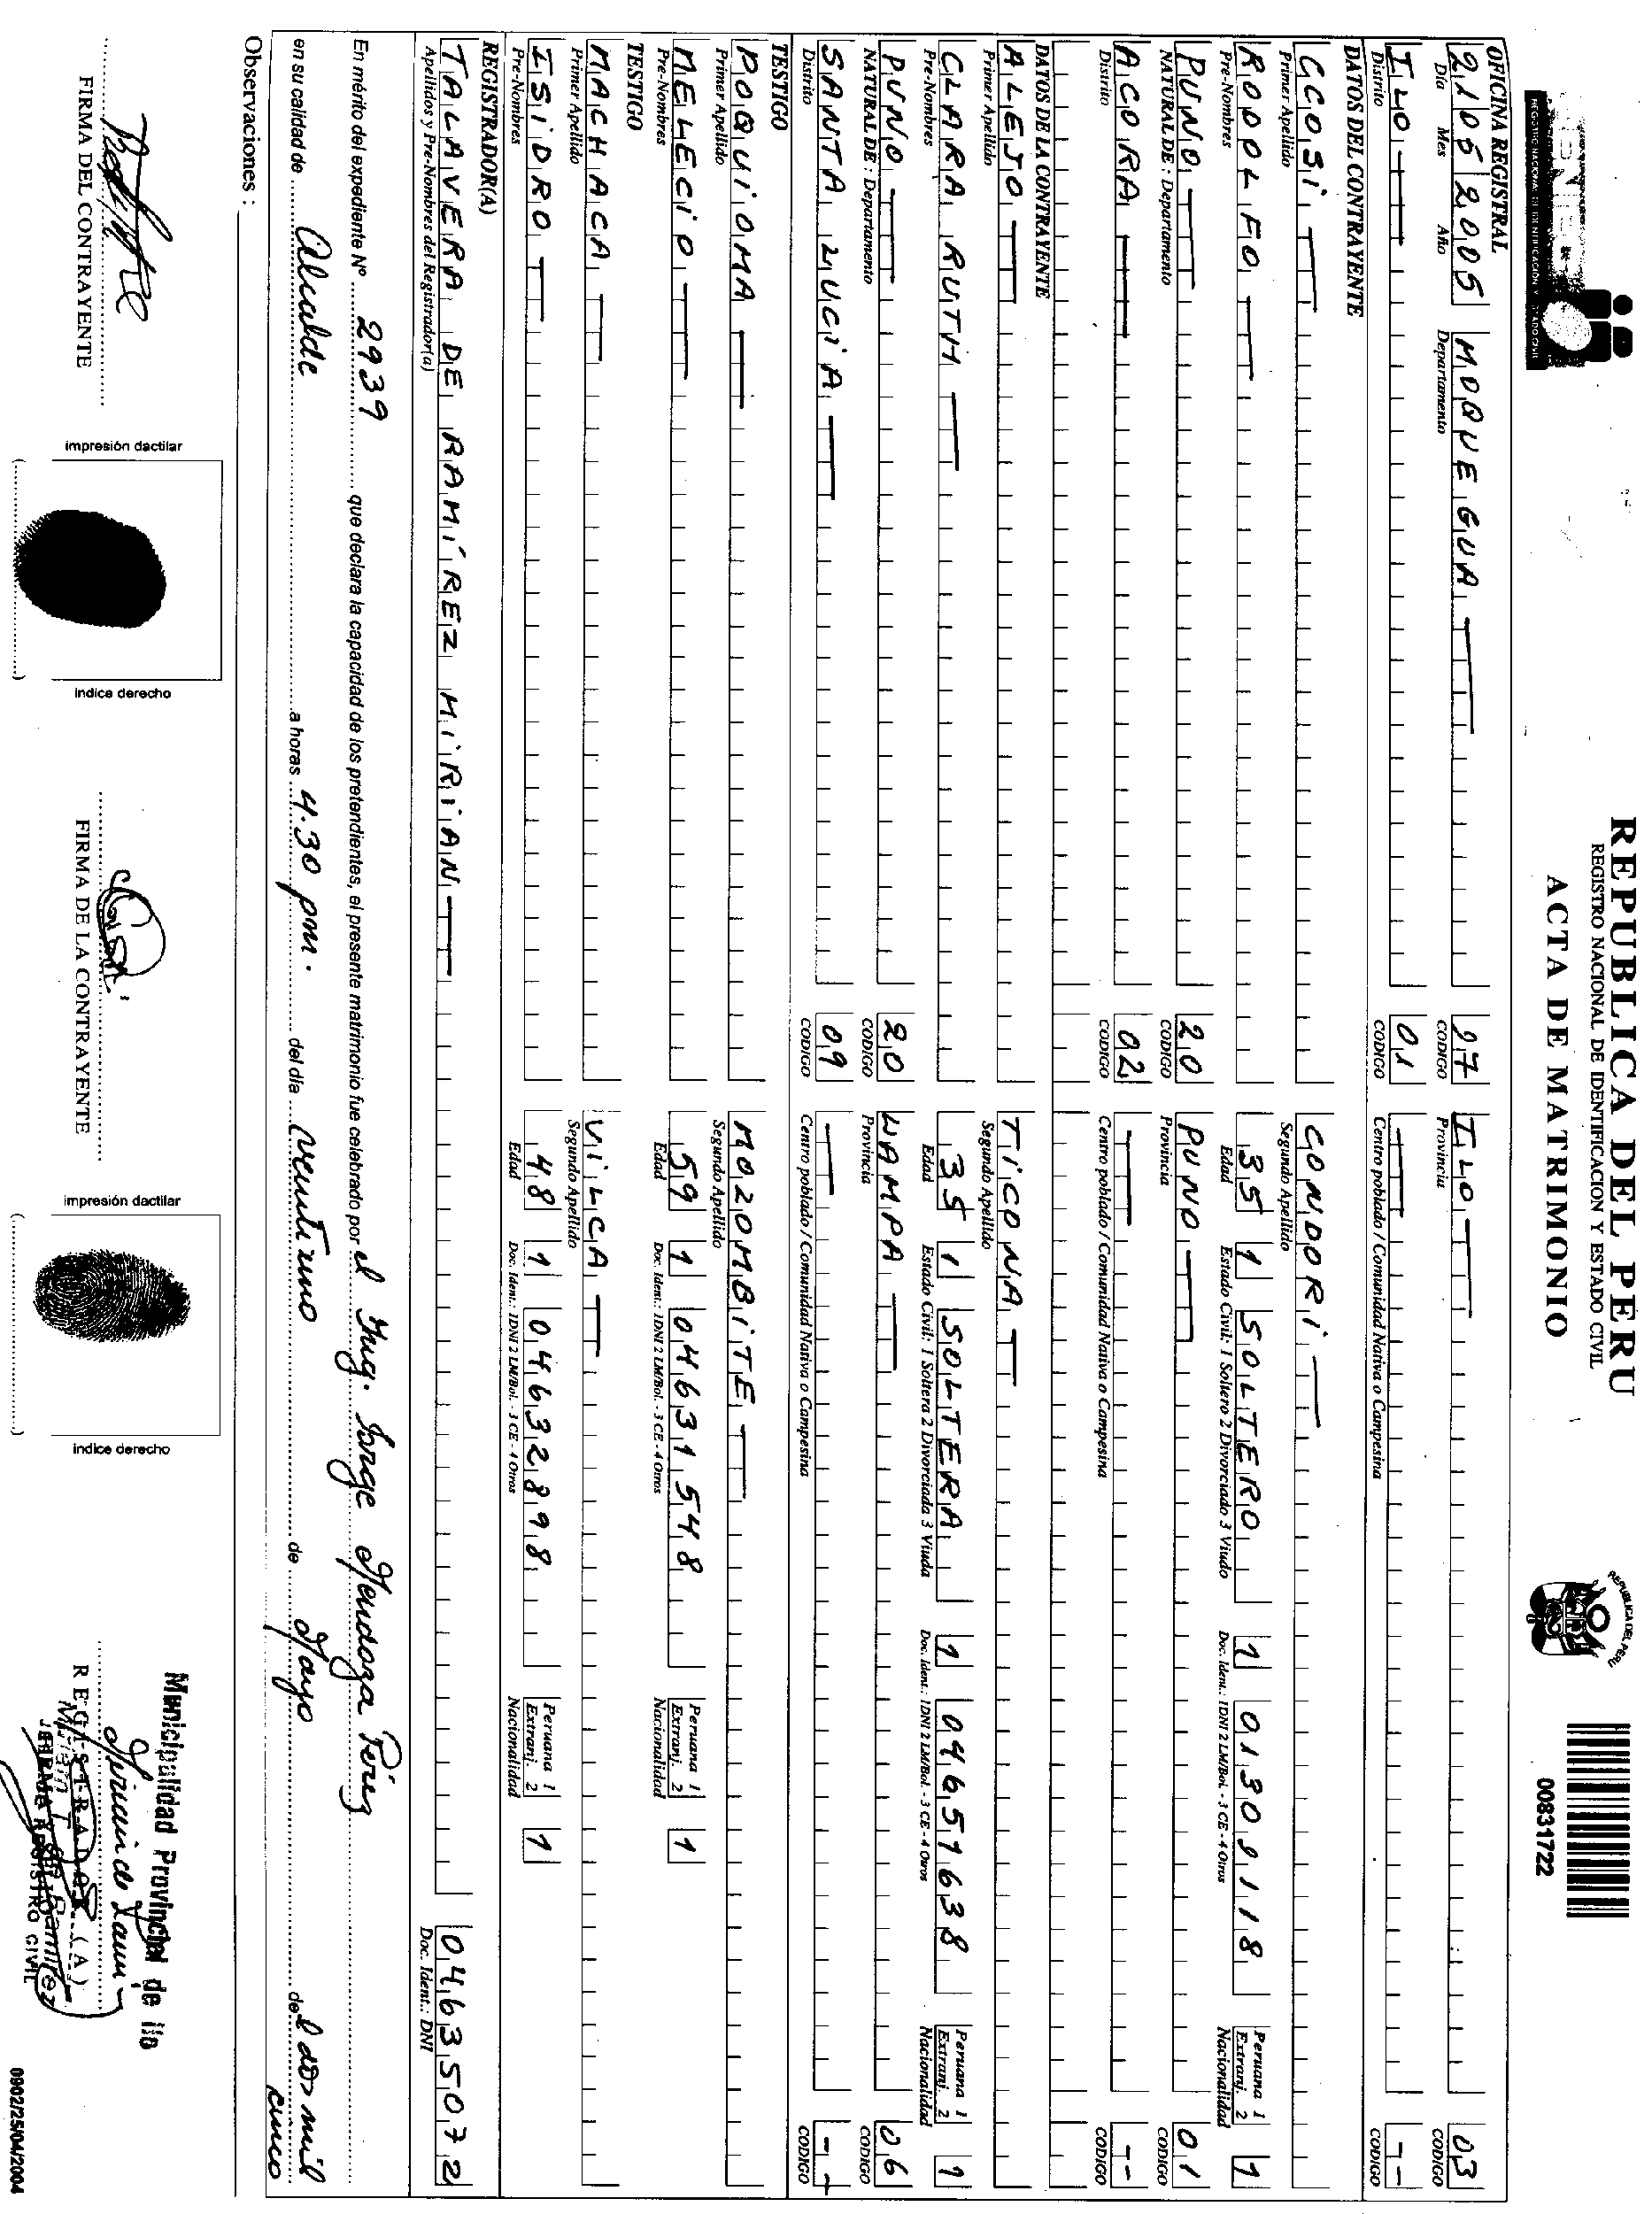 REPUBLICA DEL PERU
REGISTRO NACIONAL DE IDENTIFICACION Y ESTADO CIVIL
ACTA DE MATRIMONIO
REPUBLICA DEL PERU
00831722
OFICINA REGISTRAL
21 05 2005 MOQUEGUA 17 ILO 03
Día Mes Año Departamento CODIGO Provincia CODIGO
ILO 01 --
Distrito CODIGO Centro poblado / Comunidad Nativa o Campesina CODIGO
DATOS DEL CONTRAYENTE
CCOSI CONDORI
Primer Apellido Segundo Apellido
RODOLFO 35 1 SOLTERO 1 01309118 Peruana 1 Extranj. 2 1
Pre-Nombres Edad Estado Civil: 1 Soltero 2 Divorciado 3 Viudo Doc. Ident.: 1DNI 2 LM/Bol. - 3 CE - 4 Otros Nacionalidad
PUNO 20 PUNO 01
NATURAL DE : Departamento CODIGO Provincia CODIGO
ACORA 02 --
Distrito CODIGO Centro poblado / Comunidad Nativa o Campesina CODIGO
DATOS DE LA CONTRAYENTE
ALEJO TICONA
Primer Apellido Segundo Apellido
CLARA RUTH 35 1 SOLTERA 1 04651638 Peruana 1 Extranj. 2 1
Pre-Nombres Edad Estado Civil: 1 Soltera 2 Divorciada 3 Viuda Doc. Ident.: 1DNI 2 LM/Bol. - 3 CE - 4 Otros Nacionalidad
PUNO 20 LAMPA 06
NATURAL DE : Departamento CODIGO Provincia CODIGO
SANTA LUCIA 09 --
Distrito CODIGO Centro poblado / Comunidad Nativa o Campesina CODIGO
TESTIGO
POQUIOMA MOZOMBITE
Primer Apellido Segundo Apellido
MELECIO 59 1 04631548 Peruana 1 Extranj. 2 1
Pre-Nombres Edad Doc. Ident.: 1DNI 2 LM/Bol. - 3 CE - 4 Otros Nacionalidad
TESTIGO
MACHACA VILCA
Primer Apellido Segundo Apellido
ISIDRO 48 1 04632898 Peruana 1 Extranj. 2 1
Pre-Nombres Edad Doc. Ident.: 1DNI 2 LM/Bol. - 3 CE - 4 Otros Nacionalidad
REGISTRADOR(A)
TALAVERA DE RAMÍREZ MIRIAN 04635072
Apellidos y Pre-Nombres del Registrador(a) Doc. Ident.: DNI
En mérito del expediente Nº 2939 que declara la capacidad de los pretendientes, el presente matrimonio fue celebrado por el Ing. Jorge Mendoza Perez
en su calidad de Alcalde a horas 4.30 pm. del día veintiuno de Mayo de l dos mil cinco
Observaciones :
FIRMA DEL CONTRAYENTE
impresión dactilar
indice derecho
FIRMA DE LA CONTRAYENTE
impresión dactilar
indice derecho
Municipalidad Provincial de Ilo
REGISTRADOR (A)
REGISTRO CIVIL
0902/25/04/2004